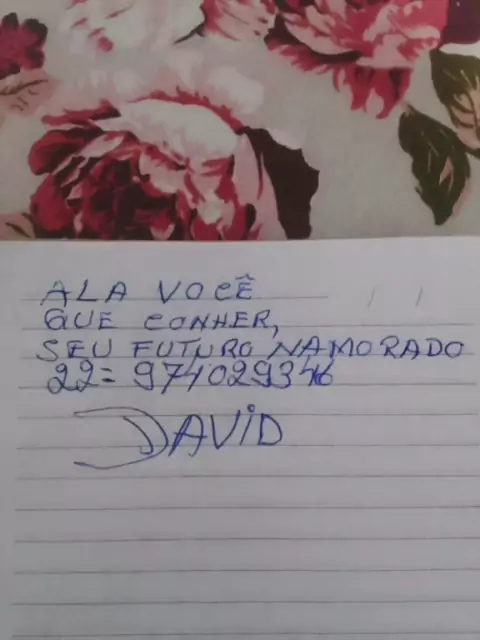 ALA VOCÊ
QUE CONHER,
SEU FUTURO NAMORADO
22= 974029346
DAVID